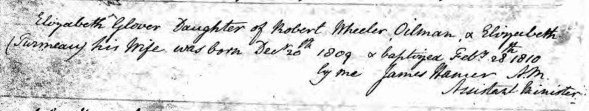 Elizabeth Glover Daughter of Robert Wheeler, Oilman, & Elizabeth
(Turmeau) his Wife was born Decr. 20th 1809 & baptized Feby. 28th 1810
by me James Hamer AM.
Assistant Minister